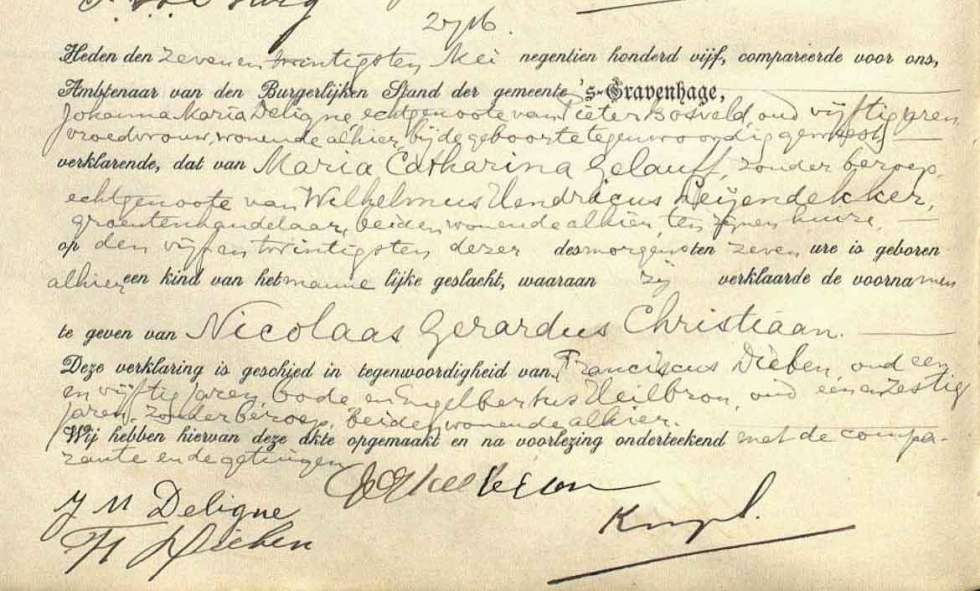 2716.
Heden den zevenen twintigsten Mei negentien honderd vijf, compareerde voor ons,
Ambtenaar van den Burgerlijken Stand der gemeente 's-Gravenhage,
Johanna Maria Deligne echtgenoote van Pieter Bosveld, oud vijftig jaren
vroedvrouw, wonende alhier, bij de geboorte tegenwoordig geweest
verklarende, dat van Maria Catharina Gelauff, zonder beroep,
echtgenoote van Wilhelmus Hendricus Leijendekker,
groentenhandelaar, beiden wonende alhier, ten zijnen huize,
op den vijf en twintigsten dezer des morgens ten zeven ure is geboren
alhier een kind van het manne lijke geslacht, waaraan zij verklaarde de voornamen
te geven van Nicolaas Gerardus Christiaan.
Deze verklaring is geschied in tegenwoordigheid van Franciscus Dieben, oud een
en vijftig jaren, bode en Engelbertus Heilbron, oud een en zestig
jaren, zonder beroep, beiden wonende alhier.
Wij hebben hiervan deze akte opgemaakt en na voorlezing onderteekend met de compa-
rante en de getuigen
J M Deligne
Fr Dieben